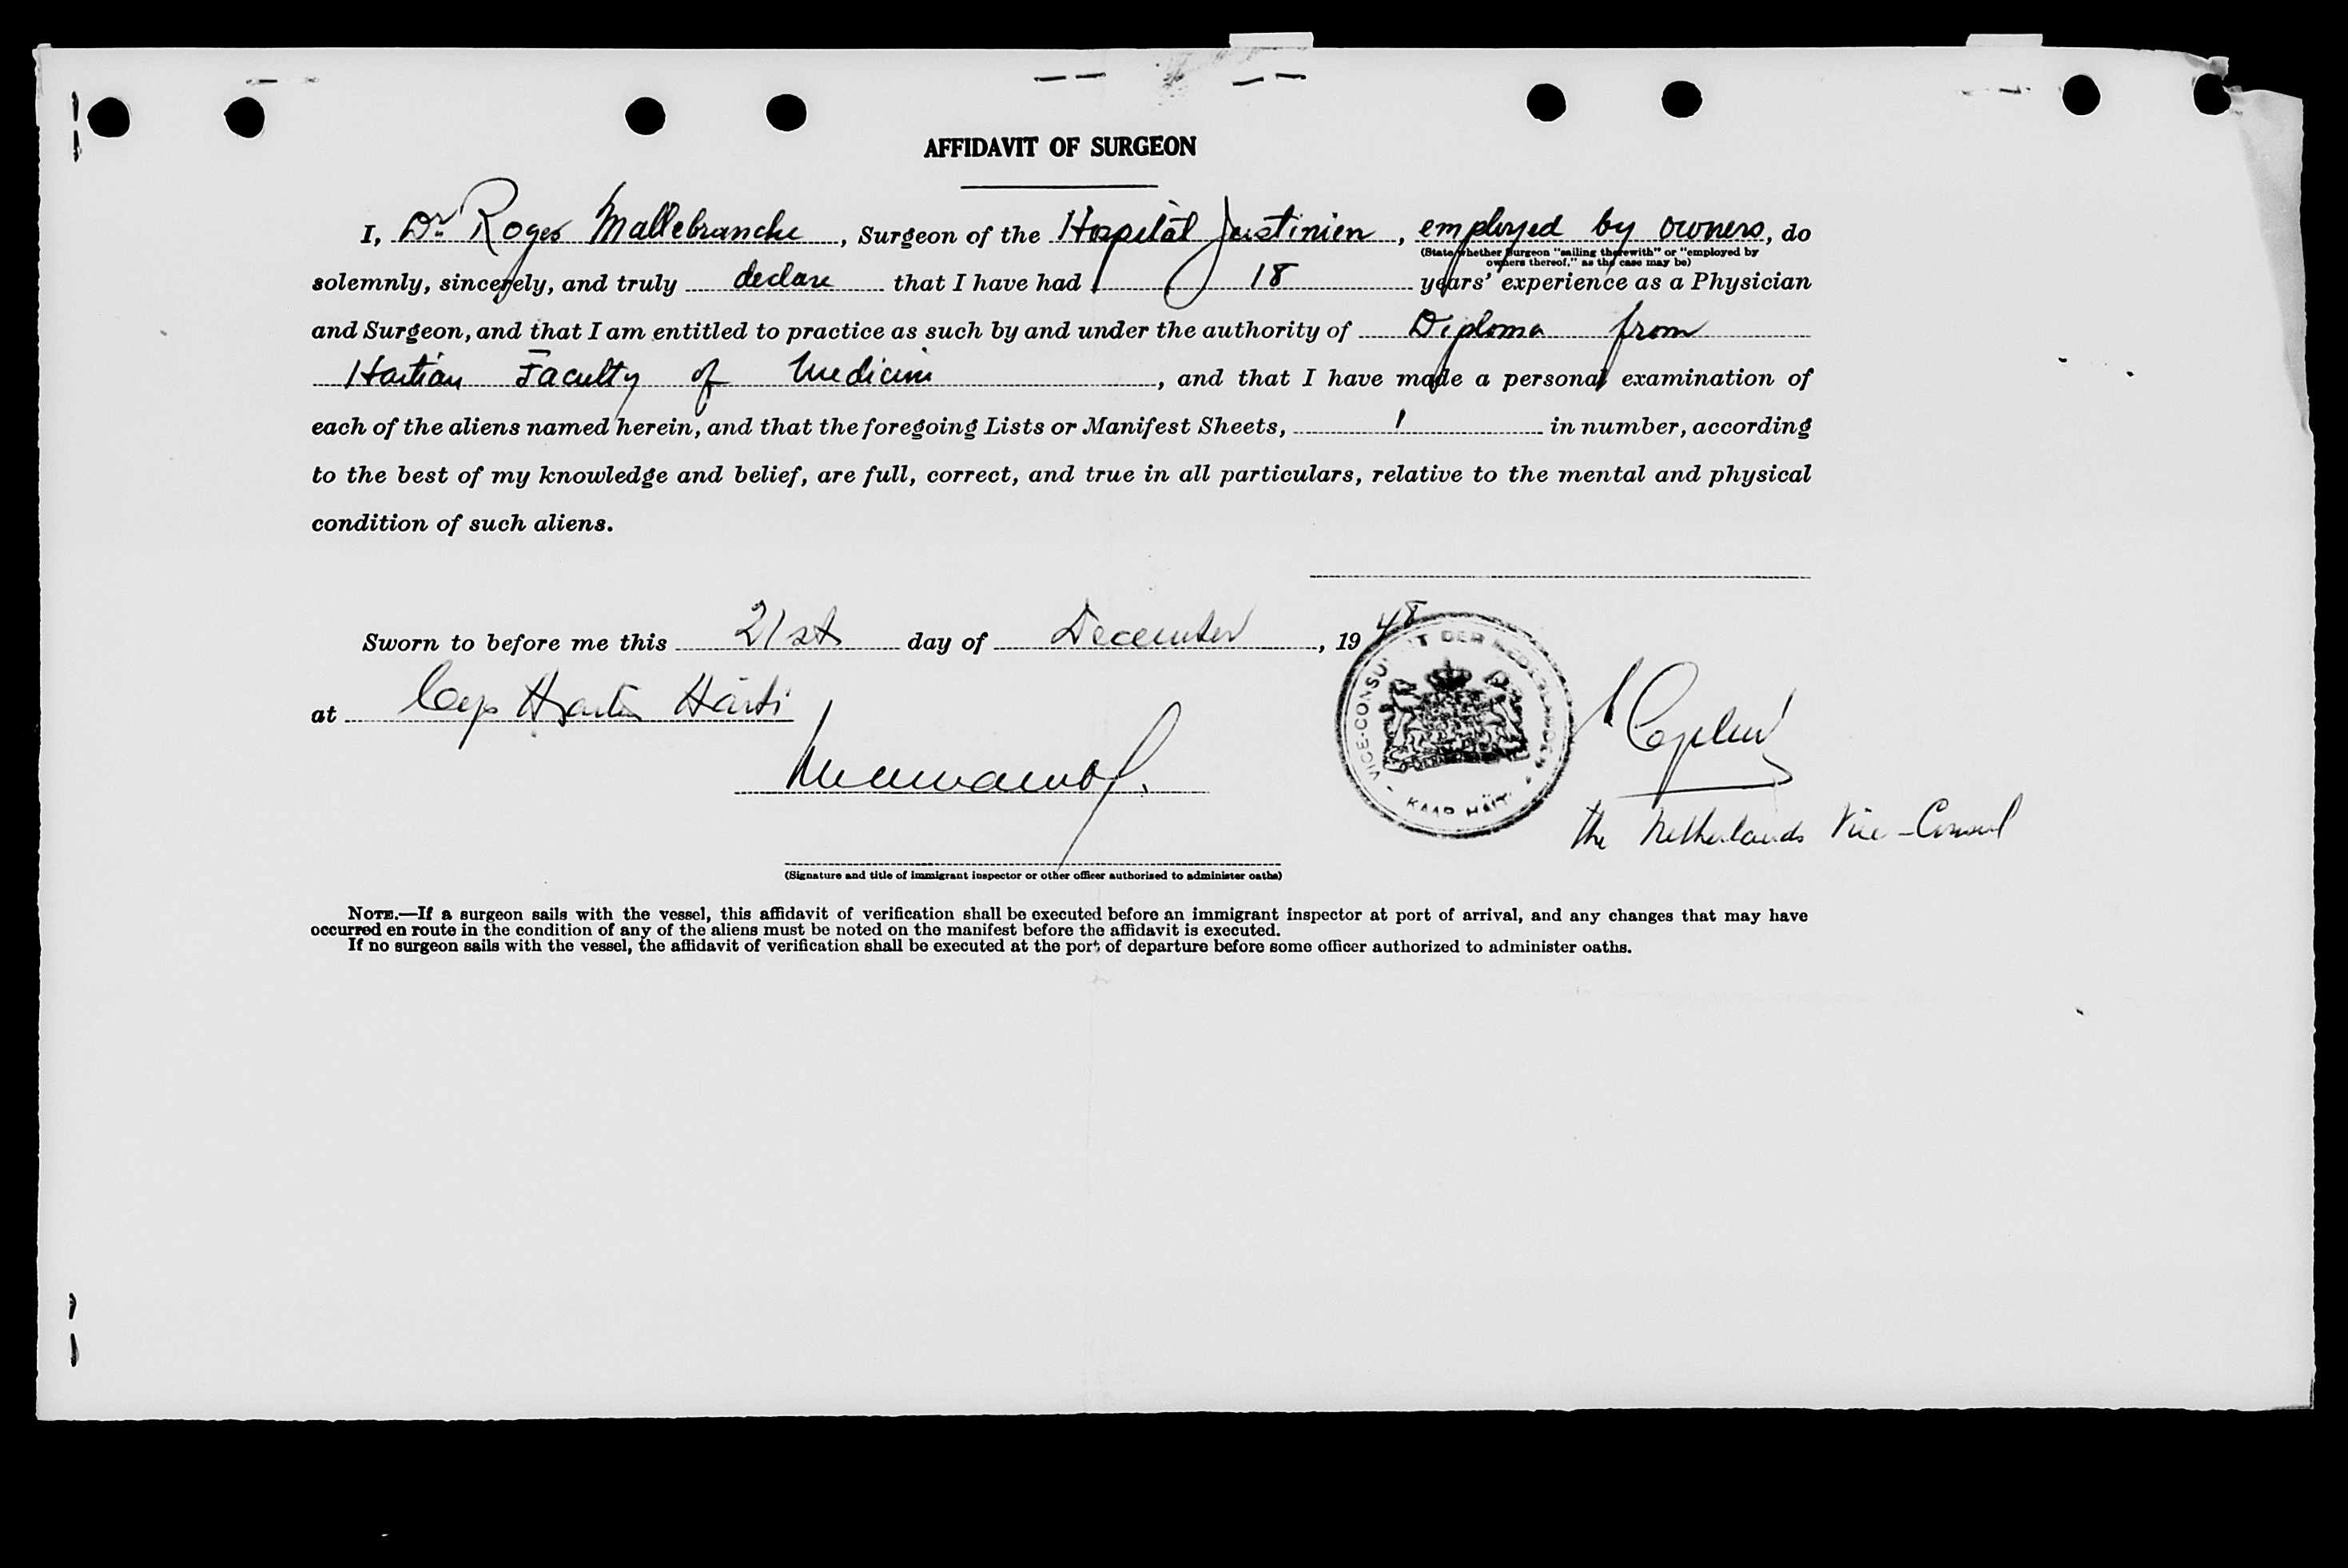 AFFIDAVIT OF SURGEON
I, Dr Roger Mallebranche, Surgeon of the Hospital Justinien, employed by owners, do
(State whether Surgeon "sailing therewith" or "employed by
owners thereof," as the case may be)
solemnly, sincerely, and truly declare that I have had 18 years' experience as a Physician
and Surgeon, and that I am entitled to practice as such by and under the authority of Diploma from
Haitian Faculty of Medicine, and that I have made a personal examination of
each of the aliens named herein, and that the foregoing Lists or Manifest Sheets, 1 in number, according
to the best of my knowledge and belief, are full, correct, and true in all particulars, relative to the mental and physical
condition of such aliens.
Sworn to before me this 21st day of December, 1948
at Cap Haitien Haiti
VICE-CONSULAAT DER NEDERLANDEN
KAAP HAÏTI
the Netherlands Vice-Consul
(Signature and title of immigrant inspector or other officer authorized to administer oaths)
NOTE.—If a surgeon sails with the vessel, this affidavit of verification shall be executed before an immigrant inspector at port of arrival, and any changes that may have
occurred en route in the condition of any of the aliens must be noted on the manifest before the affidavit is executed.
If no surgeon sails with the vessel, the affidavit of verification shall be executed at the port of departure before some officer authorized to administer oaths.